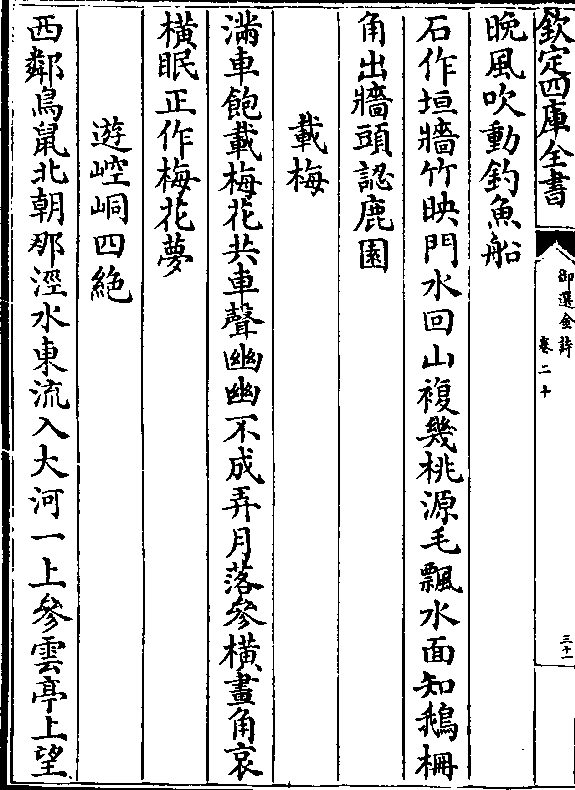 欽定四庫全書
御選金詩
卷二十
三十一
晚風吹動釣魚船
石作垣牆竹映門水回山複幾桃源毛飄水面知鵝柵
角出牆頭認鹿園
載梅
滿車飽載梅花共車聲幽幽不成弄月落參橫畫角哀
橫眠正作梅花夢
遊崆峒四絶
西鄰鳥鼠北朝𨙻涇水東流入大河一上參雲亭上望